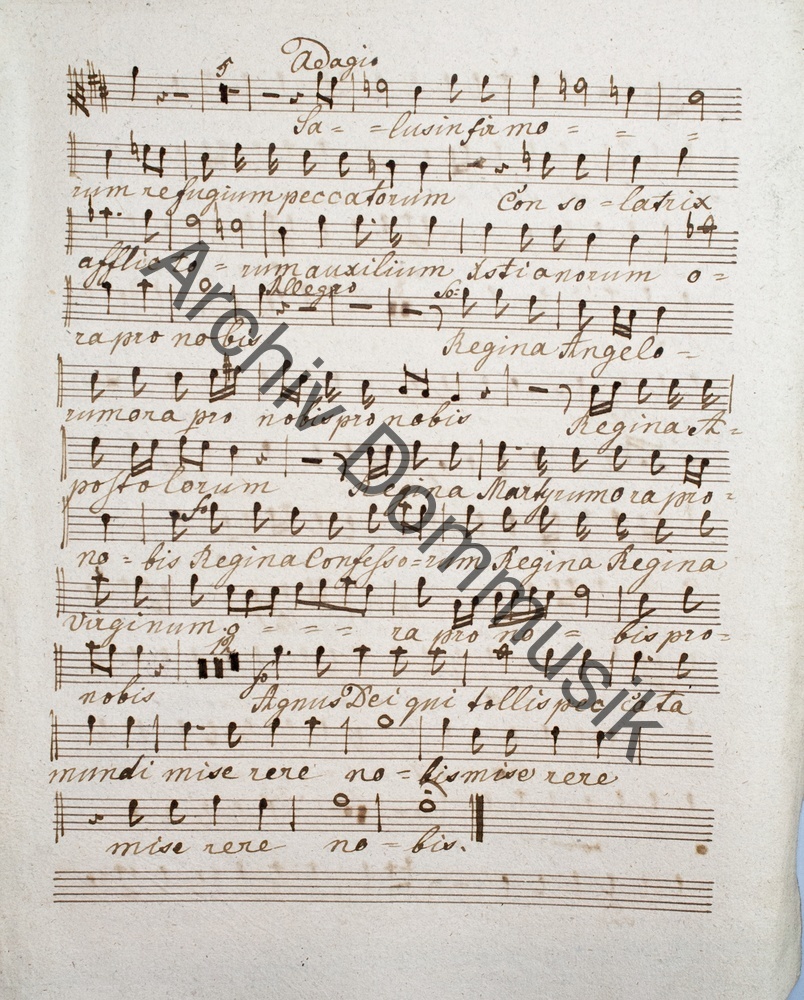 5 Adagio
Sa- -lus infir mo - - -
rum re fugium peccatorum Con so - latrix
afflic to - rum auxilium Xstianorum o -
Allegro So:
ra pro no bis Regina Angelo -
rum ora pro nobis pro nobis Regina A -
postolorum Regina Martyrum ora pro -
So:
no - bis Regina Confesso = rum Regina Regina
virginum o - - - ra pro no - bis pro -
12
nobis Agnus Dei qui tollis pec cata
mundi mise rere no - bis mise rere
mise rere no - bis.
Archiv Dommusik